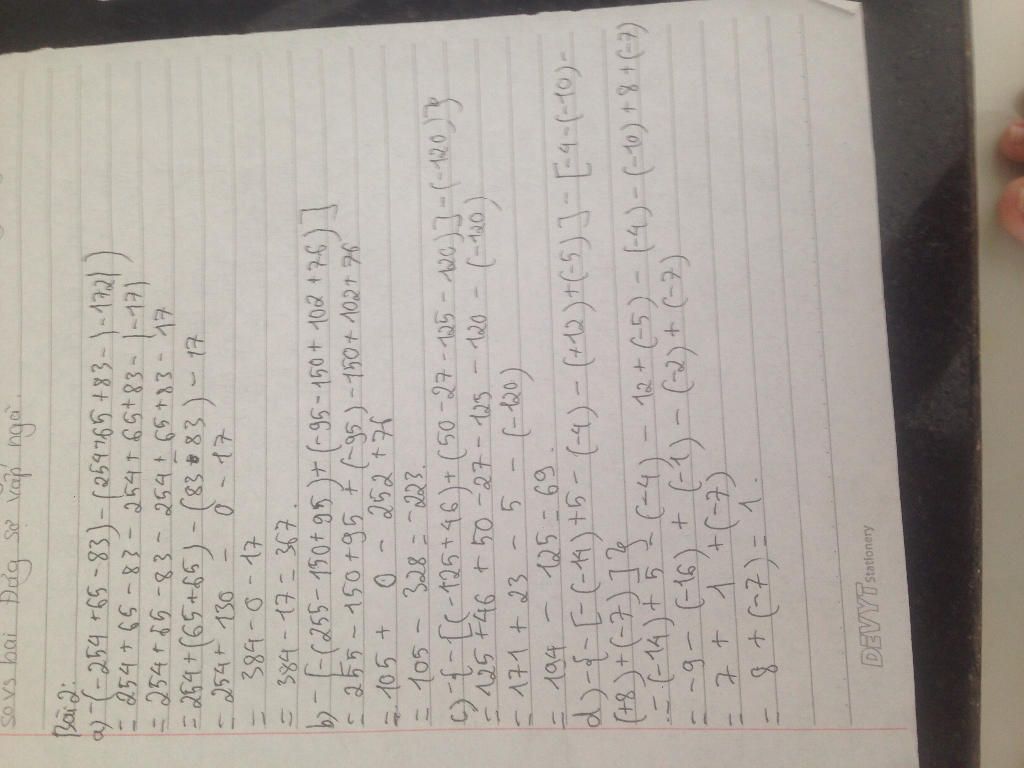 so vs bài
Bài 2:
a) -(-254+65-83) - (254+65+83 - |-172|)
= 254+65-83 - 254+65+83 - |-17|
= 254+65-83 - 254+65+83 - 17
= 254+(65+65) - (83-83) - 17
= 254+ 130 - 0 - 17
= 384 - 0 - 17
= 384 - 17 = 367.
b) -[-(255-150+95)+(-95-150+102+76)]
= 255-150+95 + (-95) - 150+102+76
= 105 + 0 - 252 + 76
= 105 - 328 = -223.
c) -{-[(-125+46)+(50-27-125-120)]-(-120)}
= 125+46 + 50-27-125 - 120 - (-120)
= 171 + 23 - 5 - (-120)
= 194 - 125 = 69.
d) -{-[-(-14)+5-(-4)-(+12)+(-5)] - [-4-(-10)-
(+8)+(-7)]}
= -(-14) + 5 - (-4) - 12 + (-5) - (-4) - (-10) + 8 + (-7)
= -9 - (-16) + (-1) - (-2) + (-7)
= 7 + 1 + (-7)
= 8 + (-7) = 1.
DEVYT Stationery